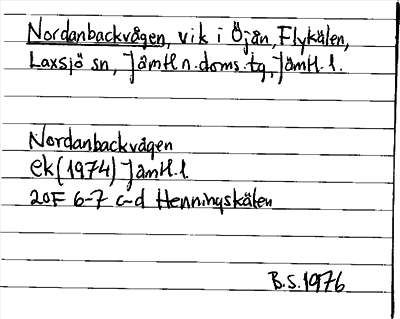 Nordanbackvågen, vik i Öjån, Flykälen,
Laxsjö sn, Jämtl n. doms. tg, Jämtl. l.
Nordanbackvågen
ek (1974) Jämtl. l.
20F 6-7 c-d Henningskälen
B.S. 1976